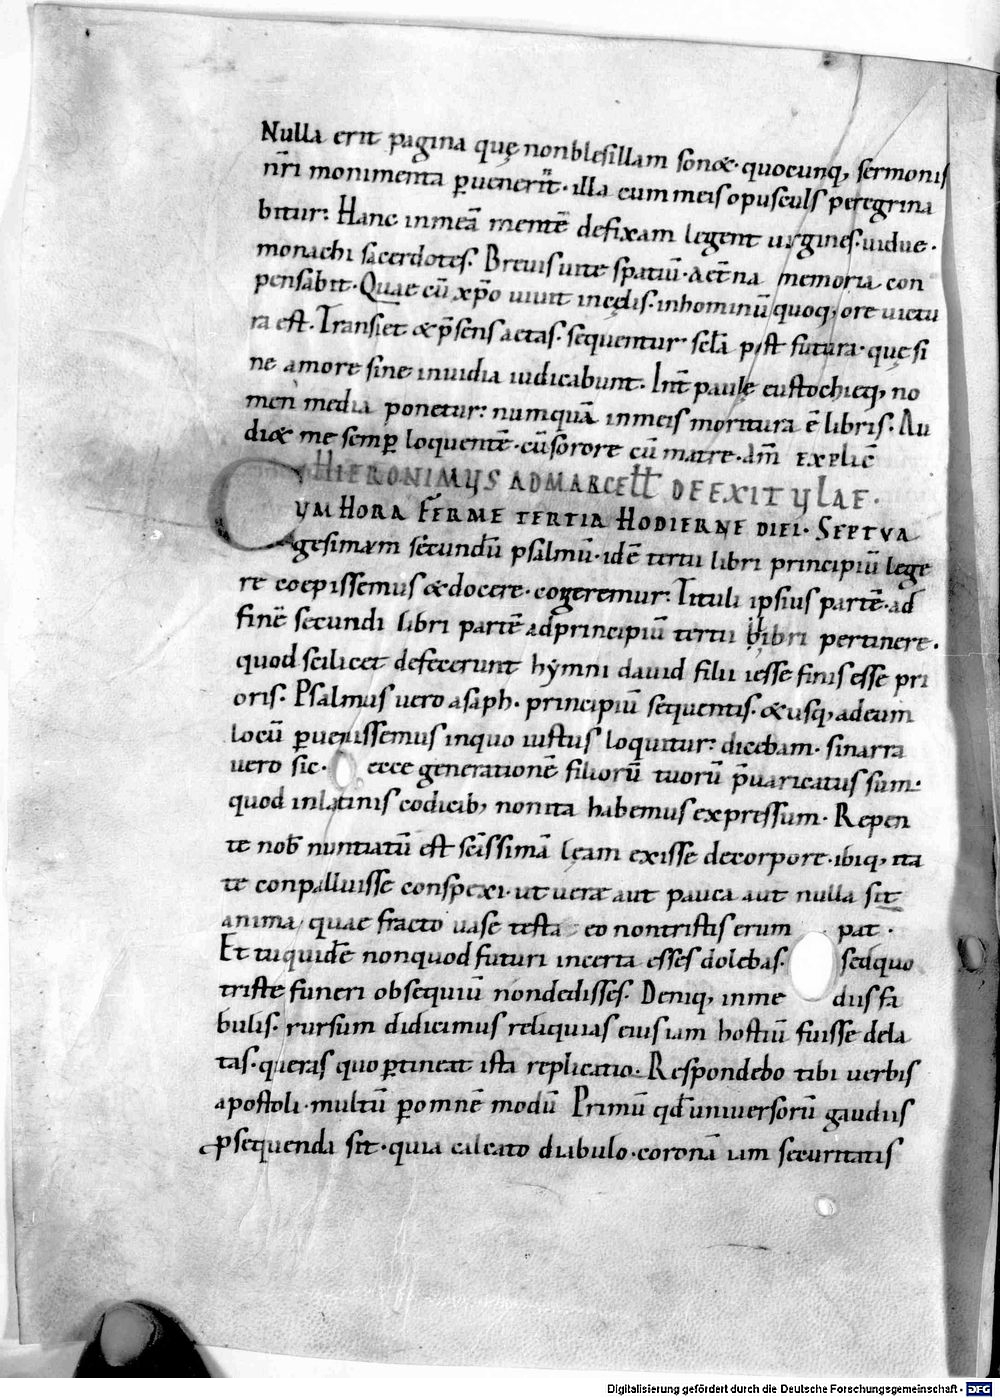 Nulla erit pagina quę nonblesillam sonæ· quocunq; sermonis
nr̄i monimenta ꝑuenerīt· illa cum meis opusculis peregrina
bitur: Hanc inmeā mentē defixam legent uirgines· uidue·
monachi sacerdotes· Breuis uite spatiū· aet̄na memoria con
pensabit· Quae cū xp̄o uiuit incęlis· inhominū quoq; ore uictu
ra est· Transiet & p̄sens aetas· sequentur sc̄la post futura· quę si
ne amore sine inuidia iudicabunt· Int̄ paulę eustochięq; no
men media ponetur: numquā inmeis moritura ē libris· Au
diæ me semꝑ loquentē· cū sorore cū matre· Am̄ explic̄
HIERONIMUS ADMARCELL DE EXITU LAE·
CUM HORA FERME TERTIA HODIERNE DIEI· SEPTUA
gesimum secundū psalmū· idē tertii libri principiū lege
re coepissemus & docere· cogeremur: Tituli ipsius partē· ad
finē secundi libri partē adprincipiū tertii libri pertinere·
quod scilicet defecerunt hẏmni dauid filii iesse finis esse pri
oris· Psalmus uero asaph· principiū sequentis· & usq; adeum
locū ꝑuenissemus inquo iustus loquitur: dicebam· sinarra
uero sic· ecce generationē filiorū tuorū p̄uaricatus sum·
quod inlatinis codicib; nonita habemus expressum· Repen
te nob̄ nuntiatū est sc̄issimā lęam exisse decorpore· ibiq; ita
te conpalluisse conspexi· ut uere aut pauca aut nulla sit
anima quae fracto uase testa eo nontristis erum pat·
Et tu quidē nonquod futuri incerta esses dolebas· sedquo
triste funeri obsequiū nondedisses· Deniq; inme diis fa
bulis· rursum didicimus reliquias eius iam hostiū fuisse dela
tas· queras quo ꝑtineat ista replicatio· Respondebo tibi uerbis
apostoli· multū ꝑ omnē modū Primū qd̄ uniuersorū gaudiis
ꝓsequenda sit· quia calcato diabulo· coronā iam securitatis
Digitalisierung gefördert durch die Deutsche Forschungsgemeinschaft - DFG